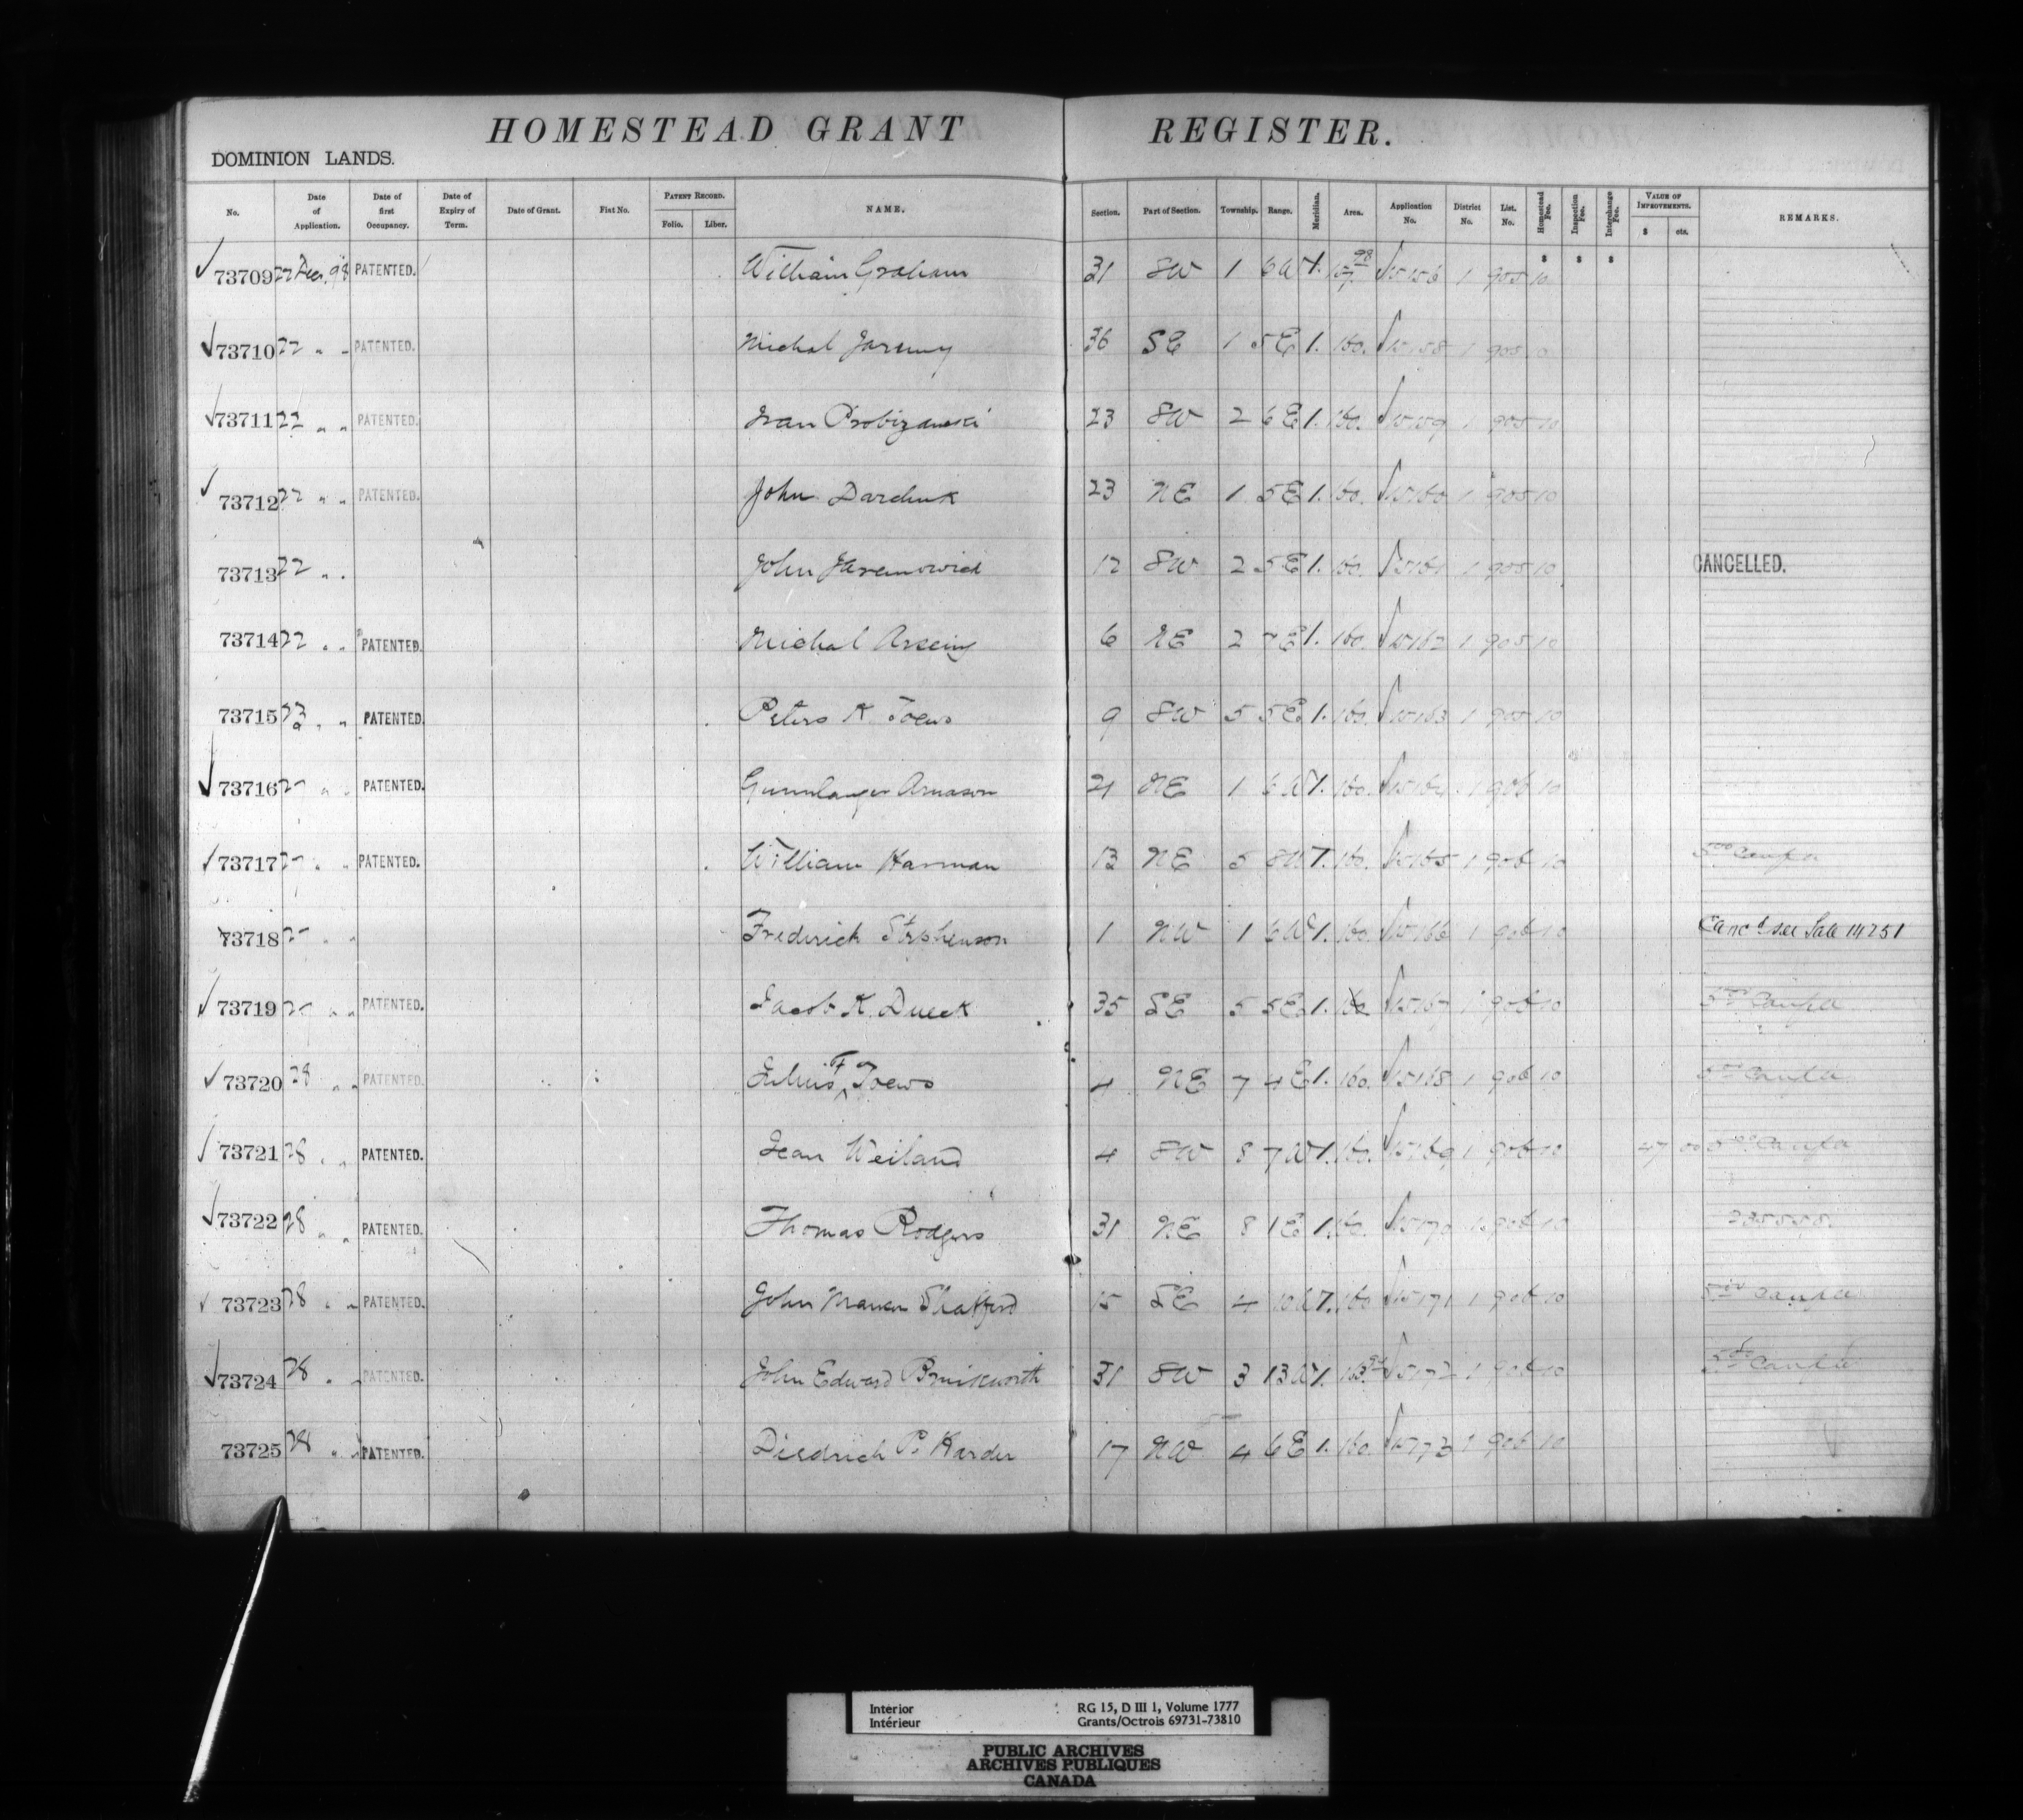 HOMESTEAD GRANT REGISTER.
DOMINION LANDS.
No. Date of Application. Date of first Occupancy. Date of Expiry of Term. Date of Grant. Fiat No. PATENT RECORD. Folio. Liber. NAME. Section. Part of Section. Township. Range. Meridian. Area. Application No. District No. List. No. Homestead Fee. Inspection Fee. Interchange Fee. VALUE OF IMPROVEMENTS. $ cts. REMARKS.
$ $ $
73709 22 Dec. 98 PATENTED. William Graham 31 SW 1 6 W 1. 1 905 10
73710 22 " " PATENTED. Michal Jaremy 36 SE 1 5 E 1. 160. 15158 1 905 10
73711 22 " " PATENTED. Ivan 23 SW 2 6 E 1. 160. 15159 1 905 10
73712 22 " " PATENTED. John Darchuk 23 NE 1 5 E 1. 160. 15160 1 905 10
73713 22 " " John 12 SW 2 5 E 1. 160. 15161 1 905 10 CANCELLED.
73714 22 " " PATENTED. Michal 6 NE 2 7 E 1. 160. 15162 1 905 10
73715 23 " " PATENTED. Peters K. Toews 9 SW 5 5 E 1. 160. 15163 1 905 10
73716 27 " " PATENTED. Gunnlaugur Arnason 21 NE 1 6 W 1. 160. 15164 1 906 10
73717 27 " " PATENTED. William Harman 13 NE 5 8 W 1. 160. 15165 1 906 10
73718 27 " " Frederick Stephenson 1 NW 1 6 W 1. 160. 15166 1 906 10 Canc'd see Sale 14251
73719 27 " " PATENTED. Jacob K. Dueck 35 SE 5 5 E 1. 160 15167 1 906 10
73720 28 " " PATENTED. Julius F Toews 4 NE 7 4 E 1. 160. 15168 1 906 10
73721 28 " " PATENTED. Jean Weiland 4 SW 8 7 W 1. 160. 15169 1 906 10 47 00
73722 28 " " PATENTED. Thomas Rodgers 31 NE 8 1 E 1. 160. 15170 1 906 10
73723 28 " " PATENTED. John Shafford 15 SE 4 10 W 1. 160 15171 1 906 10
73724 28 " " PATENTED. John Edward 31 SW 3 13 W 1. 15172 1 906 10
73725 28 " " PATENTED. Diedrich P. Harder 17 NW 4 6 E 1. 160. 15173 1 906 10
Interior RG 15, D III 1, Volume 1777
Intérieur Grants/Octrois 69731-73810
PUBLIC ARCHIVES
ARCHIVES PUBLIQUES
CANADA